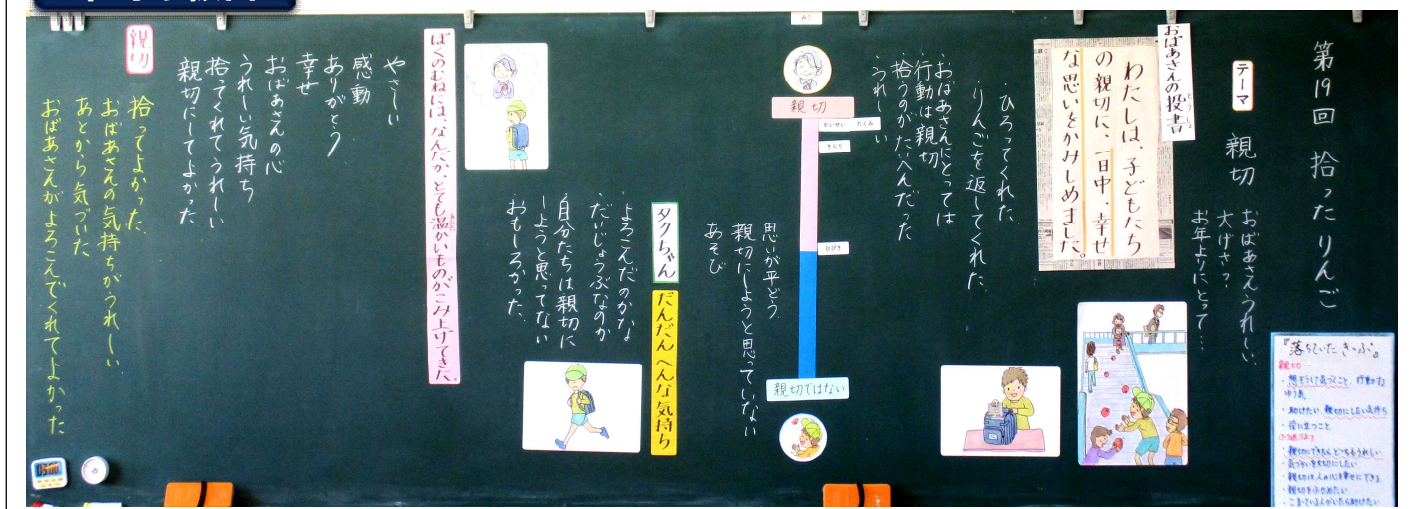 第19回 拾ったりんご
テーマ
親切
おばあさんうれしい、
大げさ?
お年よりにとって…
おばあさんの投書
とうしょ
わたしは、子どもたち
の親切に、一日中、幸せ
な思いをかみしめました。
・ひろってくれた、
・りんごを返してくれた、
おばあさんにとっては
・行動は親切
・拾うのがたいへんだった
・うれしい
みこ
親切
かいせい たくみ
きらり
ひびき
親切ではない
思いが平どう
親切にしようと思っていない
あそび
タクちゃん
だんだん へんな気持ち
・よろこんだのかな
・だいじょうぶなのか
・自分たちは親切に
しようと思ってない
おもしろかった、
ぼくのむねには、なんだか、とても温かいものがこみ上げてきた。
あたた
やさしい
感動
ありがとう
幸せ
おばあさんの心
うれしい気持ち
拾ってくれてうれしい
親切にしてよかった
親切
拾ってよかった、
おばあさんの気持ちがうれしい、
あとから気づいた
おばあさんがよろこんでくれてよかった
『落ちていたきっぷ』
親切
・想ぞうして気づくこと、行動する
ゆう気
・助けたい、親切にしたい気持ち
・役に立つこと
・親切にできたらどっちもうれしい
・気づかいを大切にしたい
・親切は人の心を幸せにできる
・親切をふかめたい
・こまっている人がいたら助けたい